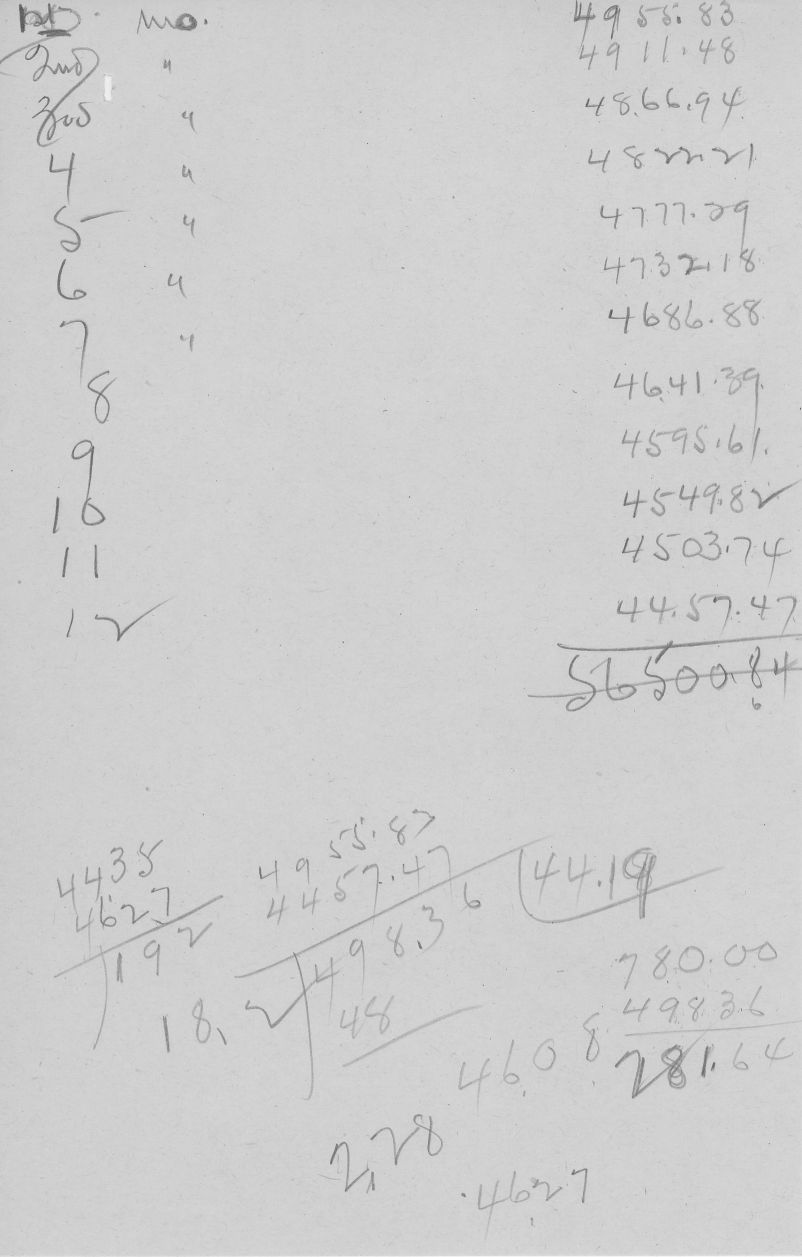 1st mo. 4955.83
2nd " 4911.48
3rd " 4866.94
4 " 4822.21
5 " 4777.29
6 " 4732.18
7 " 4686.88
8 4641.39
9 4595.61
10 4549.82
11 4503.74
12 4457.47
56500.84
6
4435 4955.83
4627 4457.47 44.19
192 498.36
18. 2 48
780.00
498 36
281.64
46.08
2.28
.4627